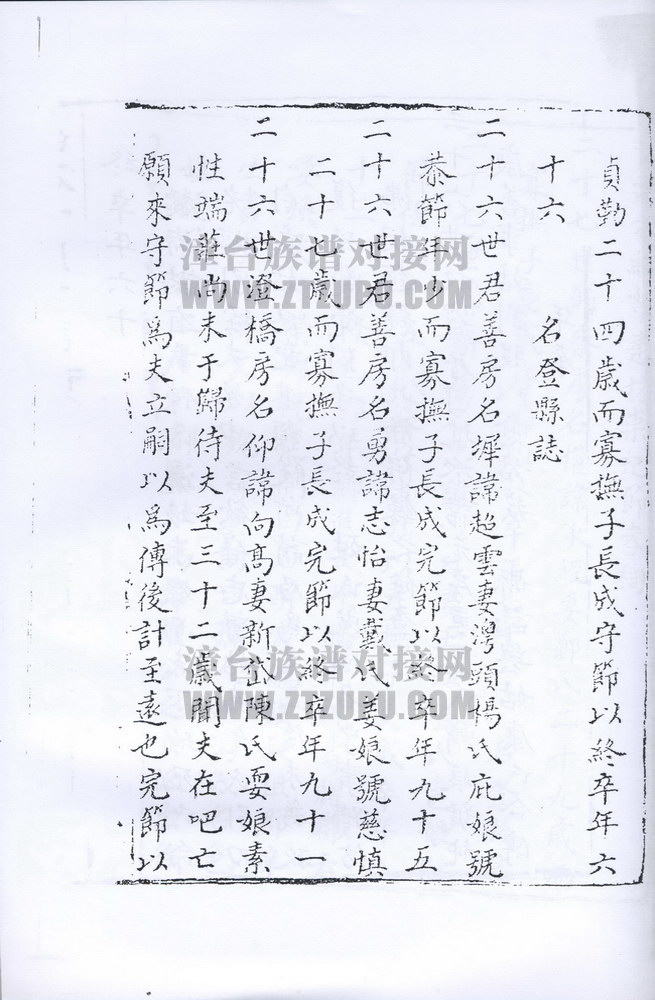 貞勤二十四歲而寡撫子長成守節以終卒年六
十六　名登縣誌
二十六世君善房名墀諱超雲妻灣頭楊氏庇娘號
恭節年少而寡撫子長成完節以終卒年九十五
二十六世君善房名勇諱志怡妻戴氏姜娘號慈慎
二十七歲而寡撫子長成完節以終卒年九十一
二十六世澄橋房名仰諱向高妻新岱陳氏耍娘素
性端莊尚未于歸待夫至三十二歲聞夫在吧亡
願來守節為夫立嗣以為傳後計至遠也完節以
漳台族谱对接网
WWW.ZTZUPU.COM
漳台族谱对接网
WWW.ZTZUPU.COM